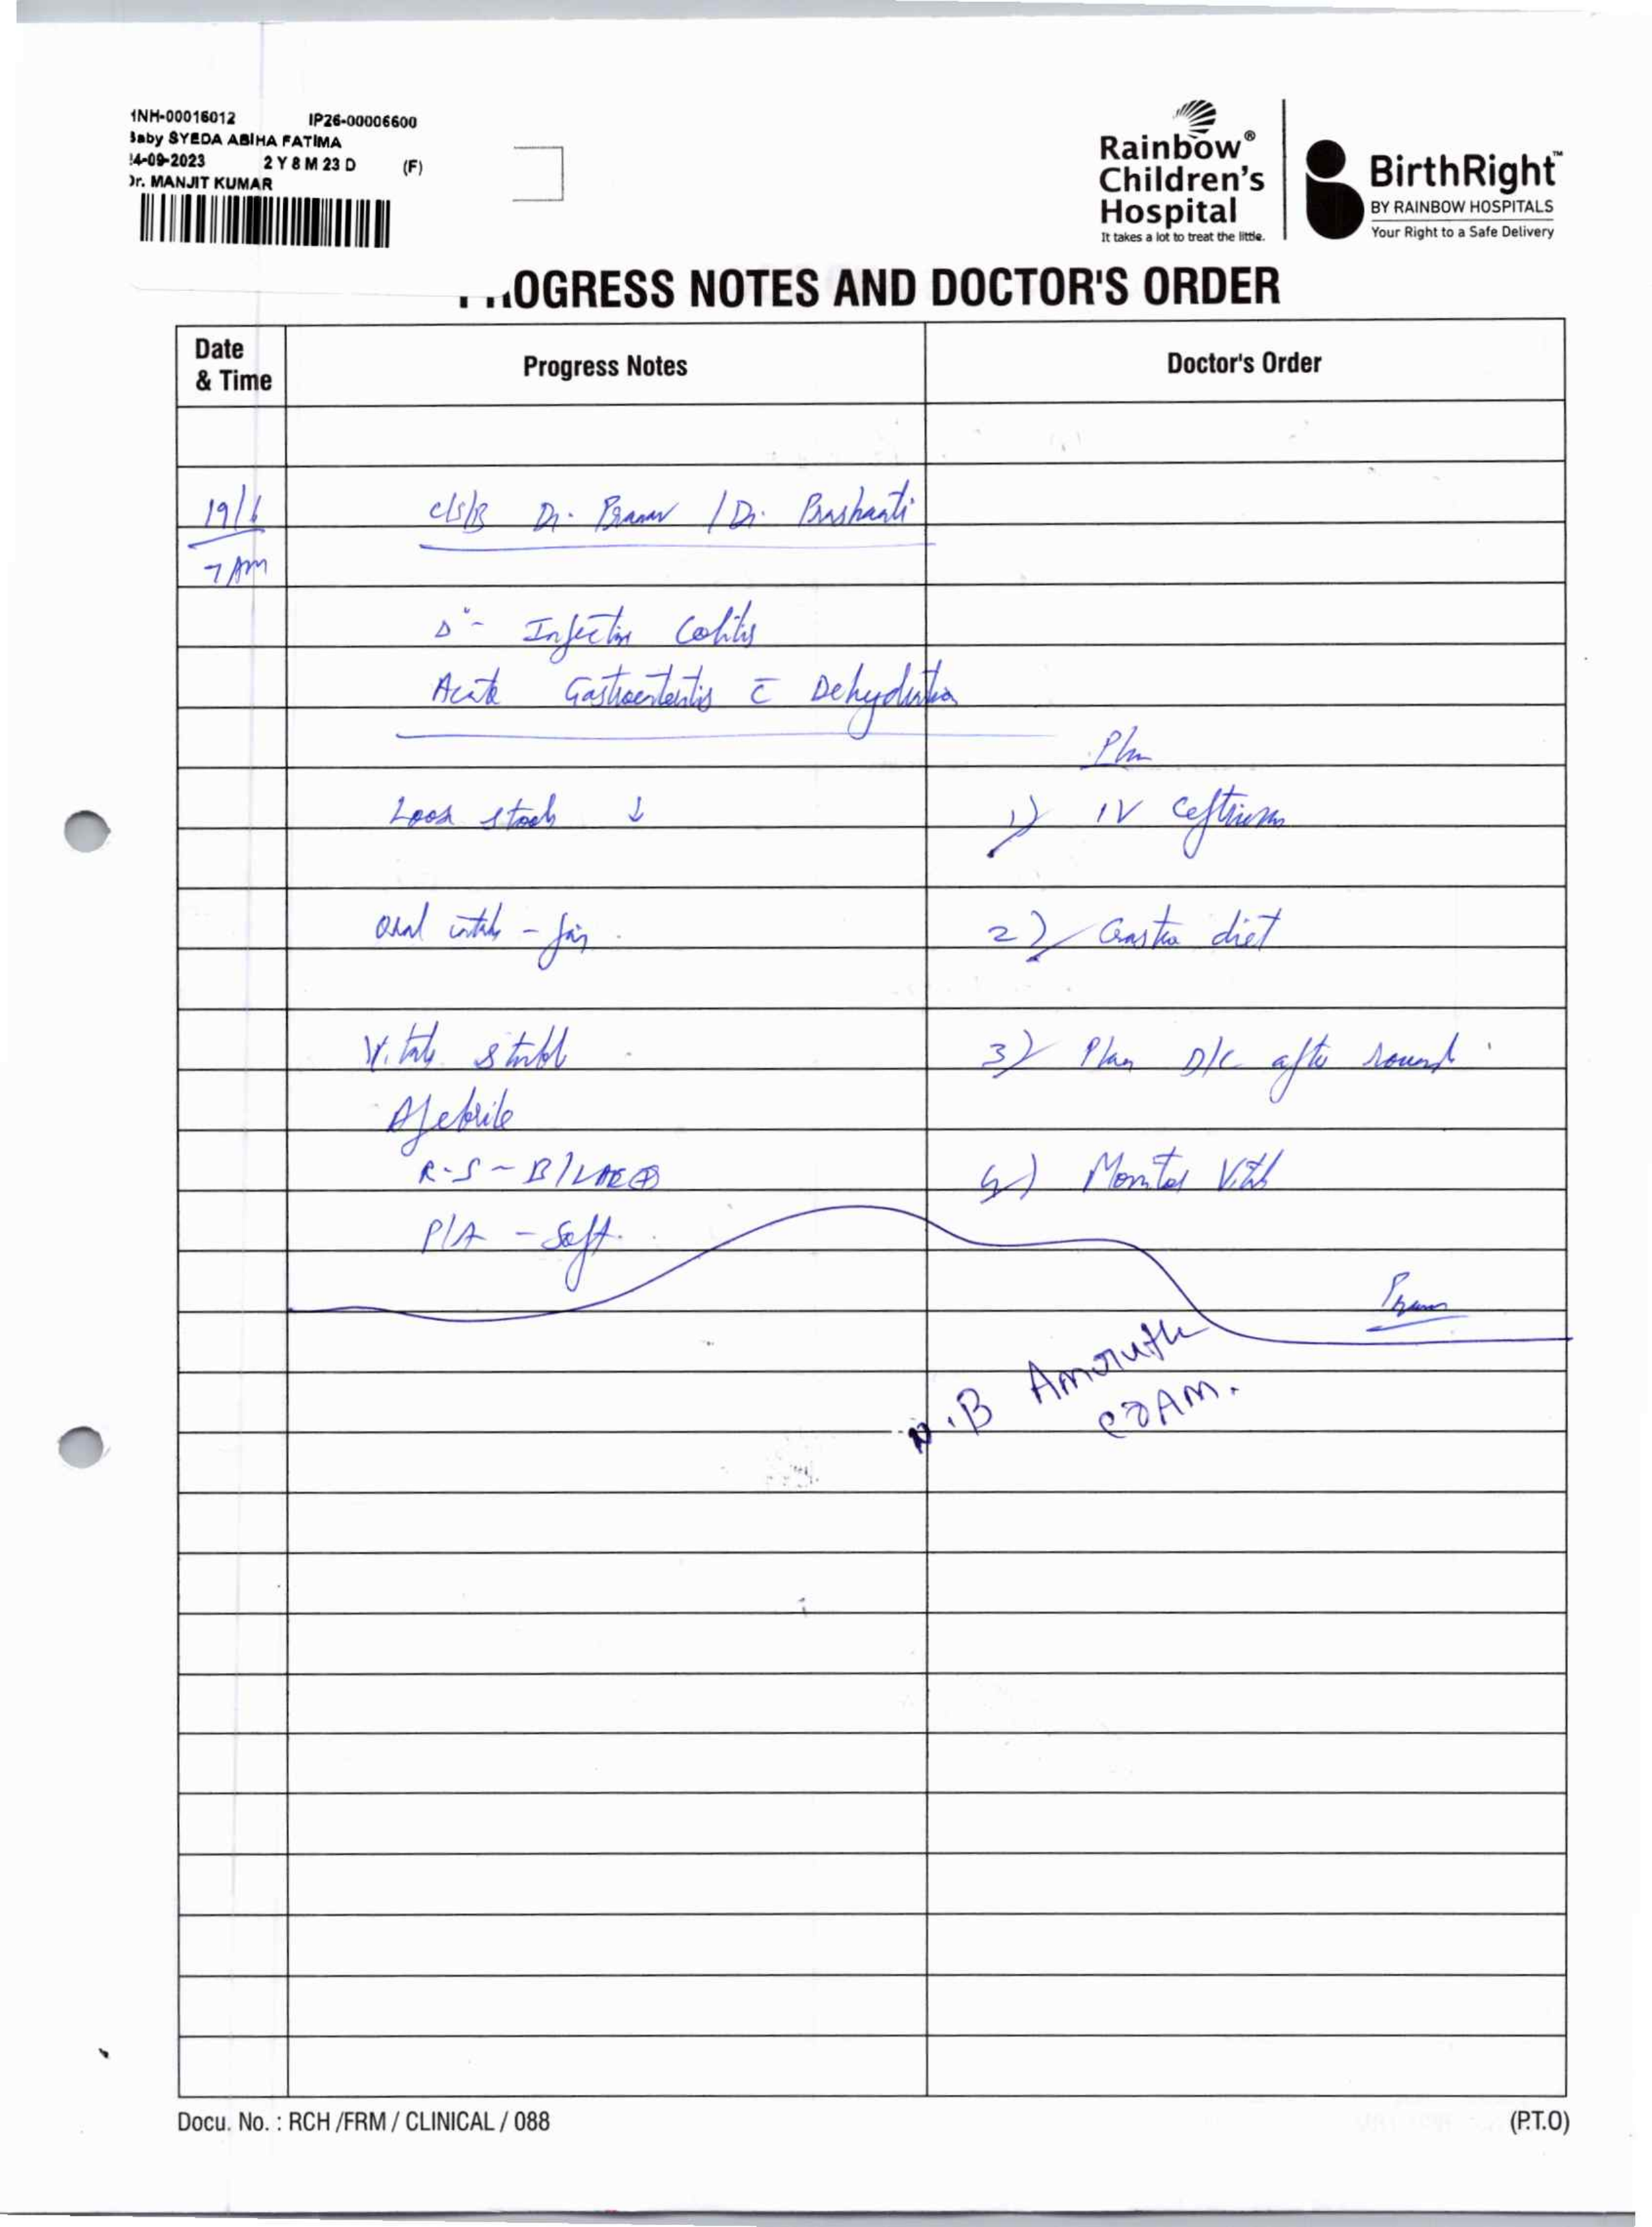 HNH-00016012 IP26-00006600
Baby SYEDA ABIHA FATIMA
24-09-2023 2 Y 8 M 23 D (F)
Dr. MANJIT KUMAR
Rainbow®
Children's
Hospital
It takes a lot to treat the little.
BirthRight™
BY RAINBOW HOSPITALS
Your Right to a Safe Delivery
OGRESS NOTES AND DOCTOR'S ORDER
Date & Time
Progress Notes
Doctor's Order
19/6
7 AM
c/s/B Dr. Pranav / Dr. Prashanti
Δ - Infective Colitis
Acute Gastroenteritis c̄ Dehydration
Loose stools ↓
Oral intake - fair.
Vitals stable
Afebrile
R.S - B/L AE ⊕
P/A - Soft.
Plan
1) IV ceftriaxone
2) Gastro diet
3) Plan D/C after rounds
4) Monitor Vitals
Pranav
N.B Amrutha
@7AM.
Docu. No. : RCH /FRM / CLINICAL / 088
(P.T.O)